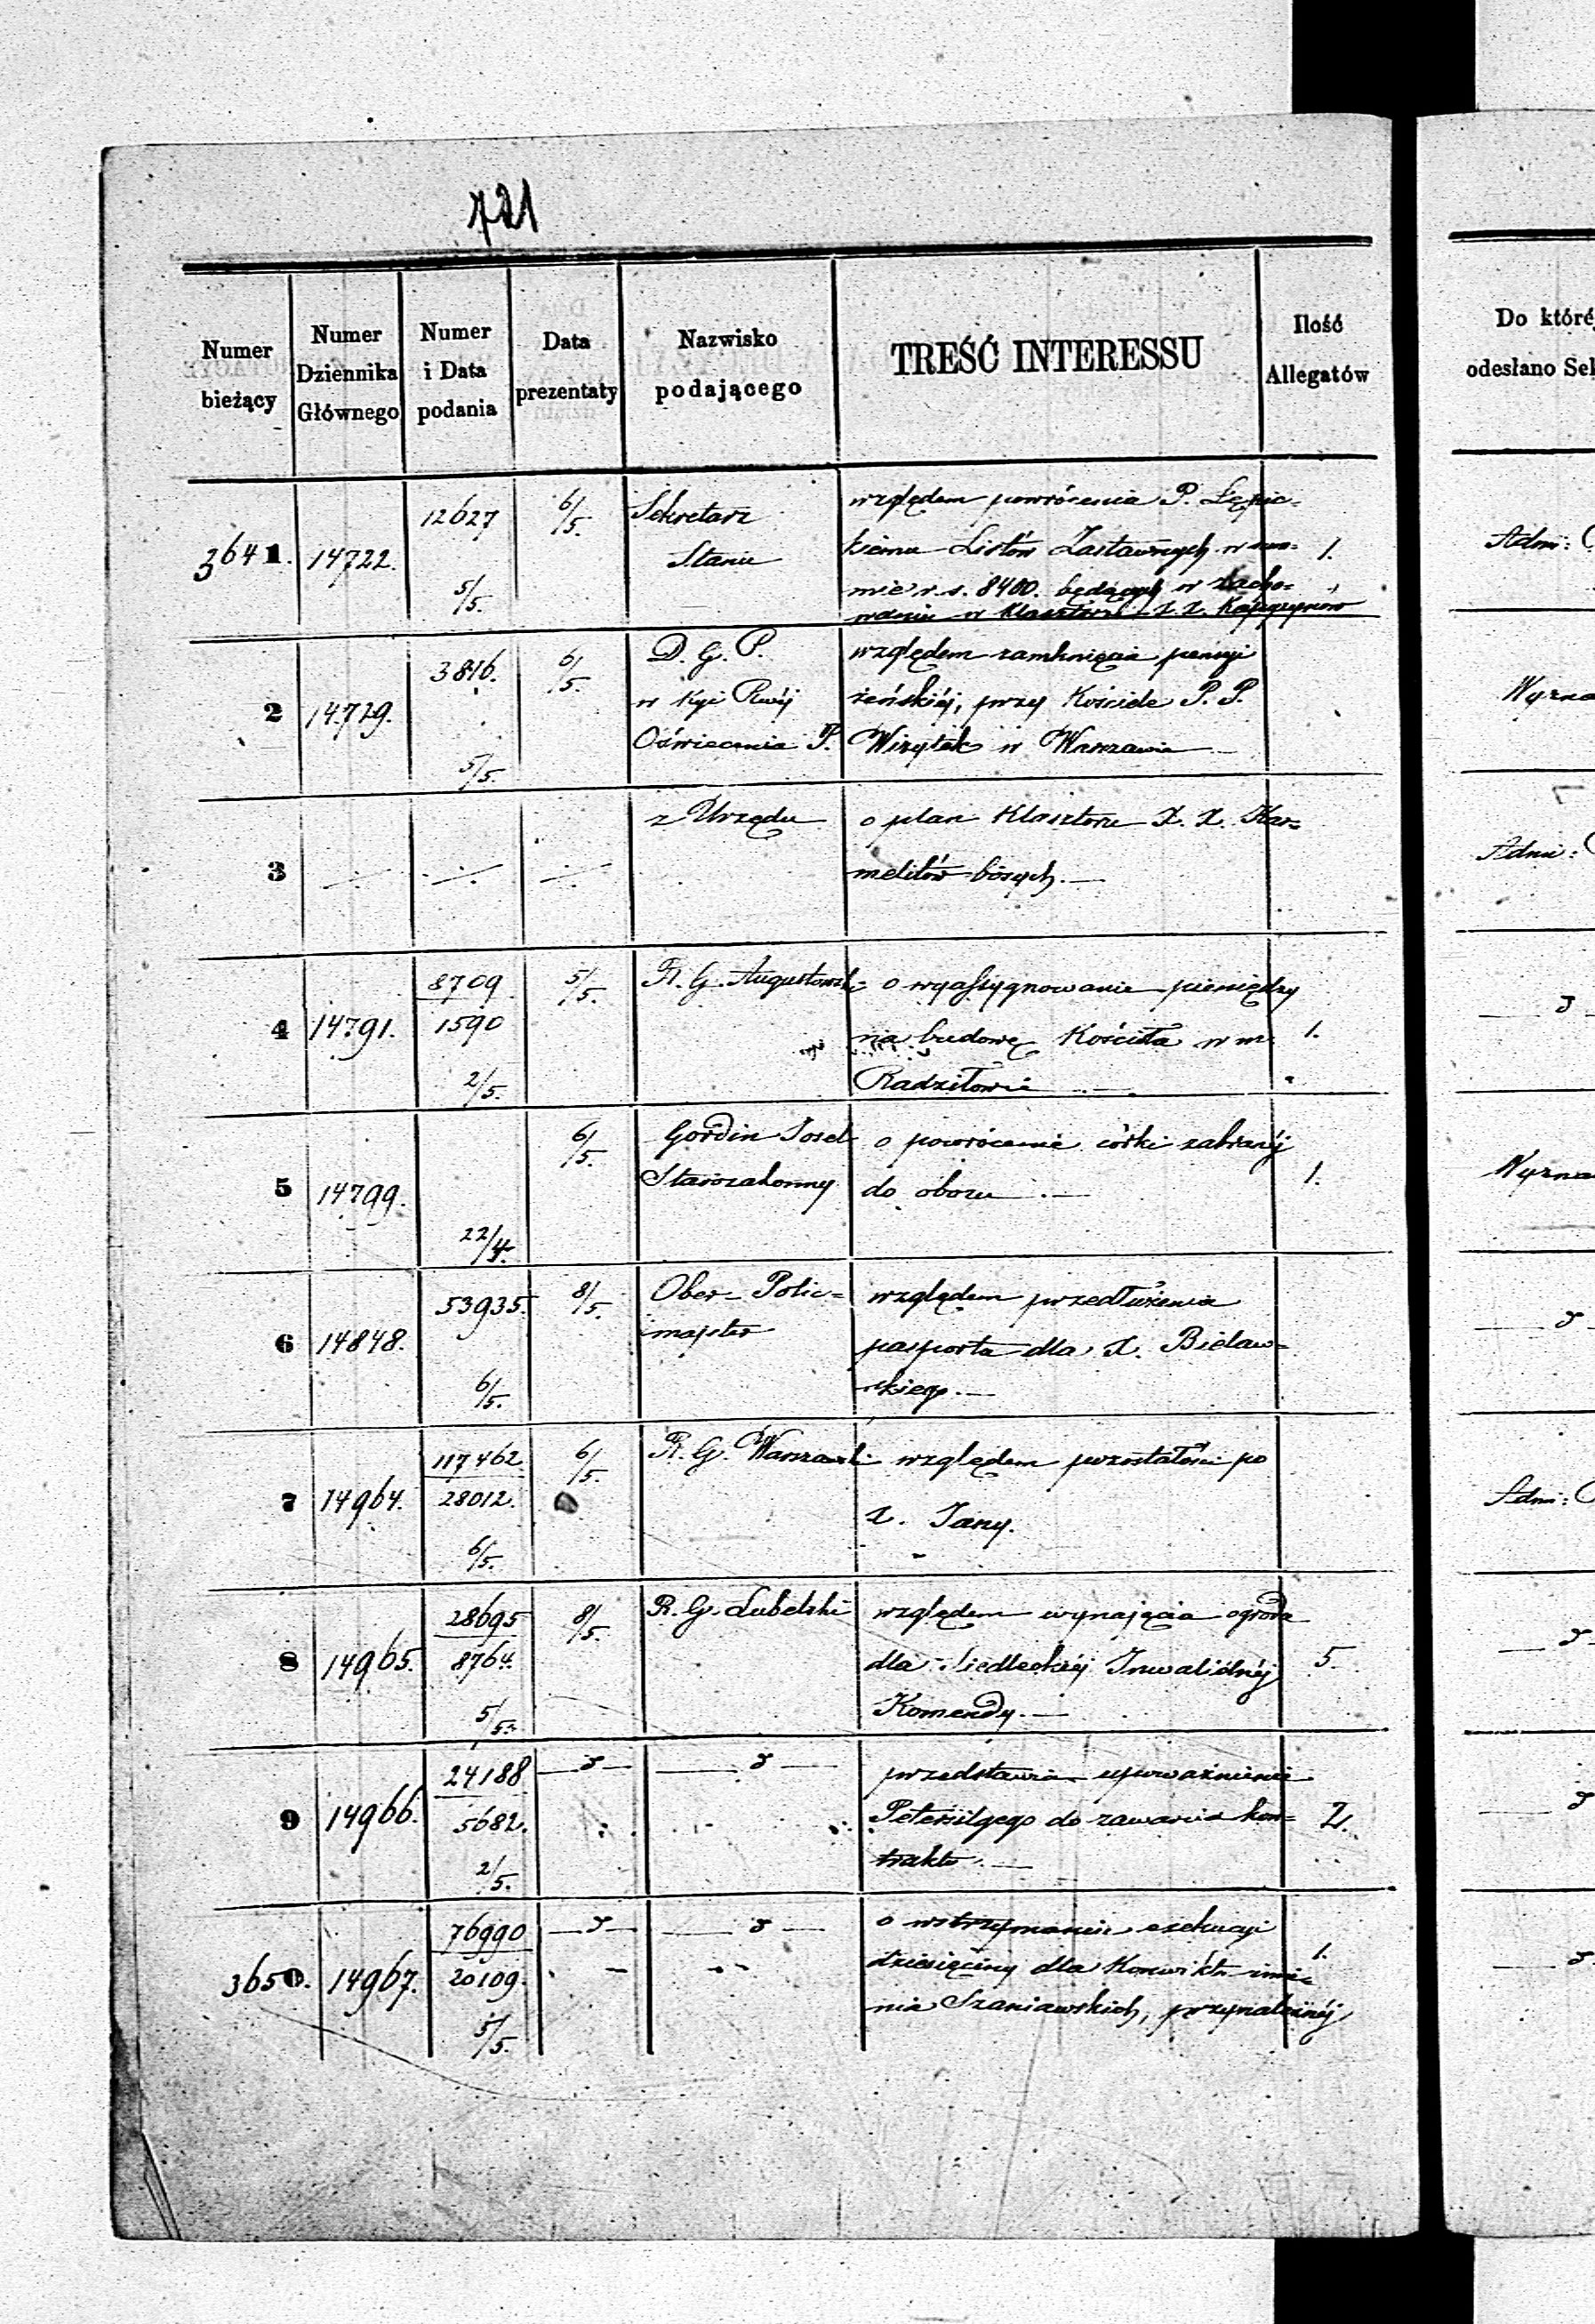 721
Numer bieżący
Numer Dziennika Głównego
Numer i Data podania
Data prezentaty
Nazwisko podającego
TREŚĆ INTERESSU
Ilość Allegatów
Do któré
odesłano Sek
3641. 14722. 12627 5/5. 6/5.
Sekretarz
Stanu
względem powrócenia P. Łępic=
kiemu Listów Zastawnych w sum=
mie r. s. 8400. będących w zacho=
waniu w Klasztorze X. X. Kapucynów
1.
Adm:
2 14729. 3816. 5/5. 6/5.
D. G. P.
w Kyi Rwéj
Oświecenia P.
względem zamknięcia pensyi
żeńskiéj, przy Kościele P. P.
Wizytek w Warszawie
Wyzna
3
z Urzędu
o plan Klasztoru X. X. Kar=
melitów bosych.
Adm:
4 14791. 8709 1590 2/5. 5/5.
R. G. Augustowski
o wyassygnowanie pieniędzy
na budowę Kościoła w m.
Radziłowie
1.
5 14799. 22/4. 6/5.
Gordin Josel
Starozakonny
o powrócenie córki zabranéj
do obozu
1.
Wyzna
6 14848. 53935. 6/5. 8/5.
Ober-Polic=
majster
względem przedłużenia
pasportu dla X. Bielaw=
skiego.
7 14964. 117462 28012. 6/5. 6/5.
R. G. Warszawski
względem pozostałości po
X. Jany.
Adm:
8 14965. 28695 8764. 5/5. 8/5.
R. G. Lubelski
względem wynajęcia ogrodu
dla Siedleckiéj Inwalidnéj
Komendy.
5.
9 14966. 24188 5682. 2/5.
przedstawia upoważnienie
Petersilgego do zawarcia kon=
traktu.
2.
3650. 14967. 76990 20109. 5/5.
o wstrzymanie exekucyi
dziesięciny dla Konwiktu imie=
nia Szaniawskich, przynależnéj
1.